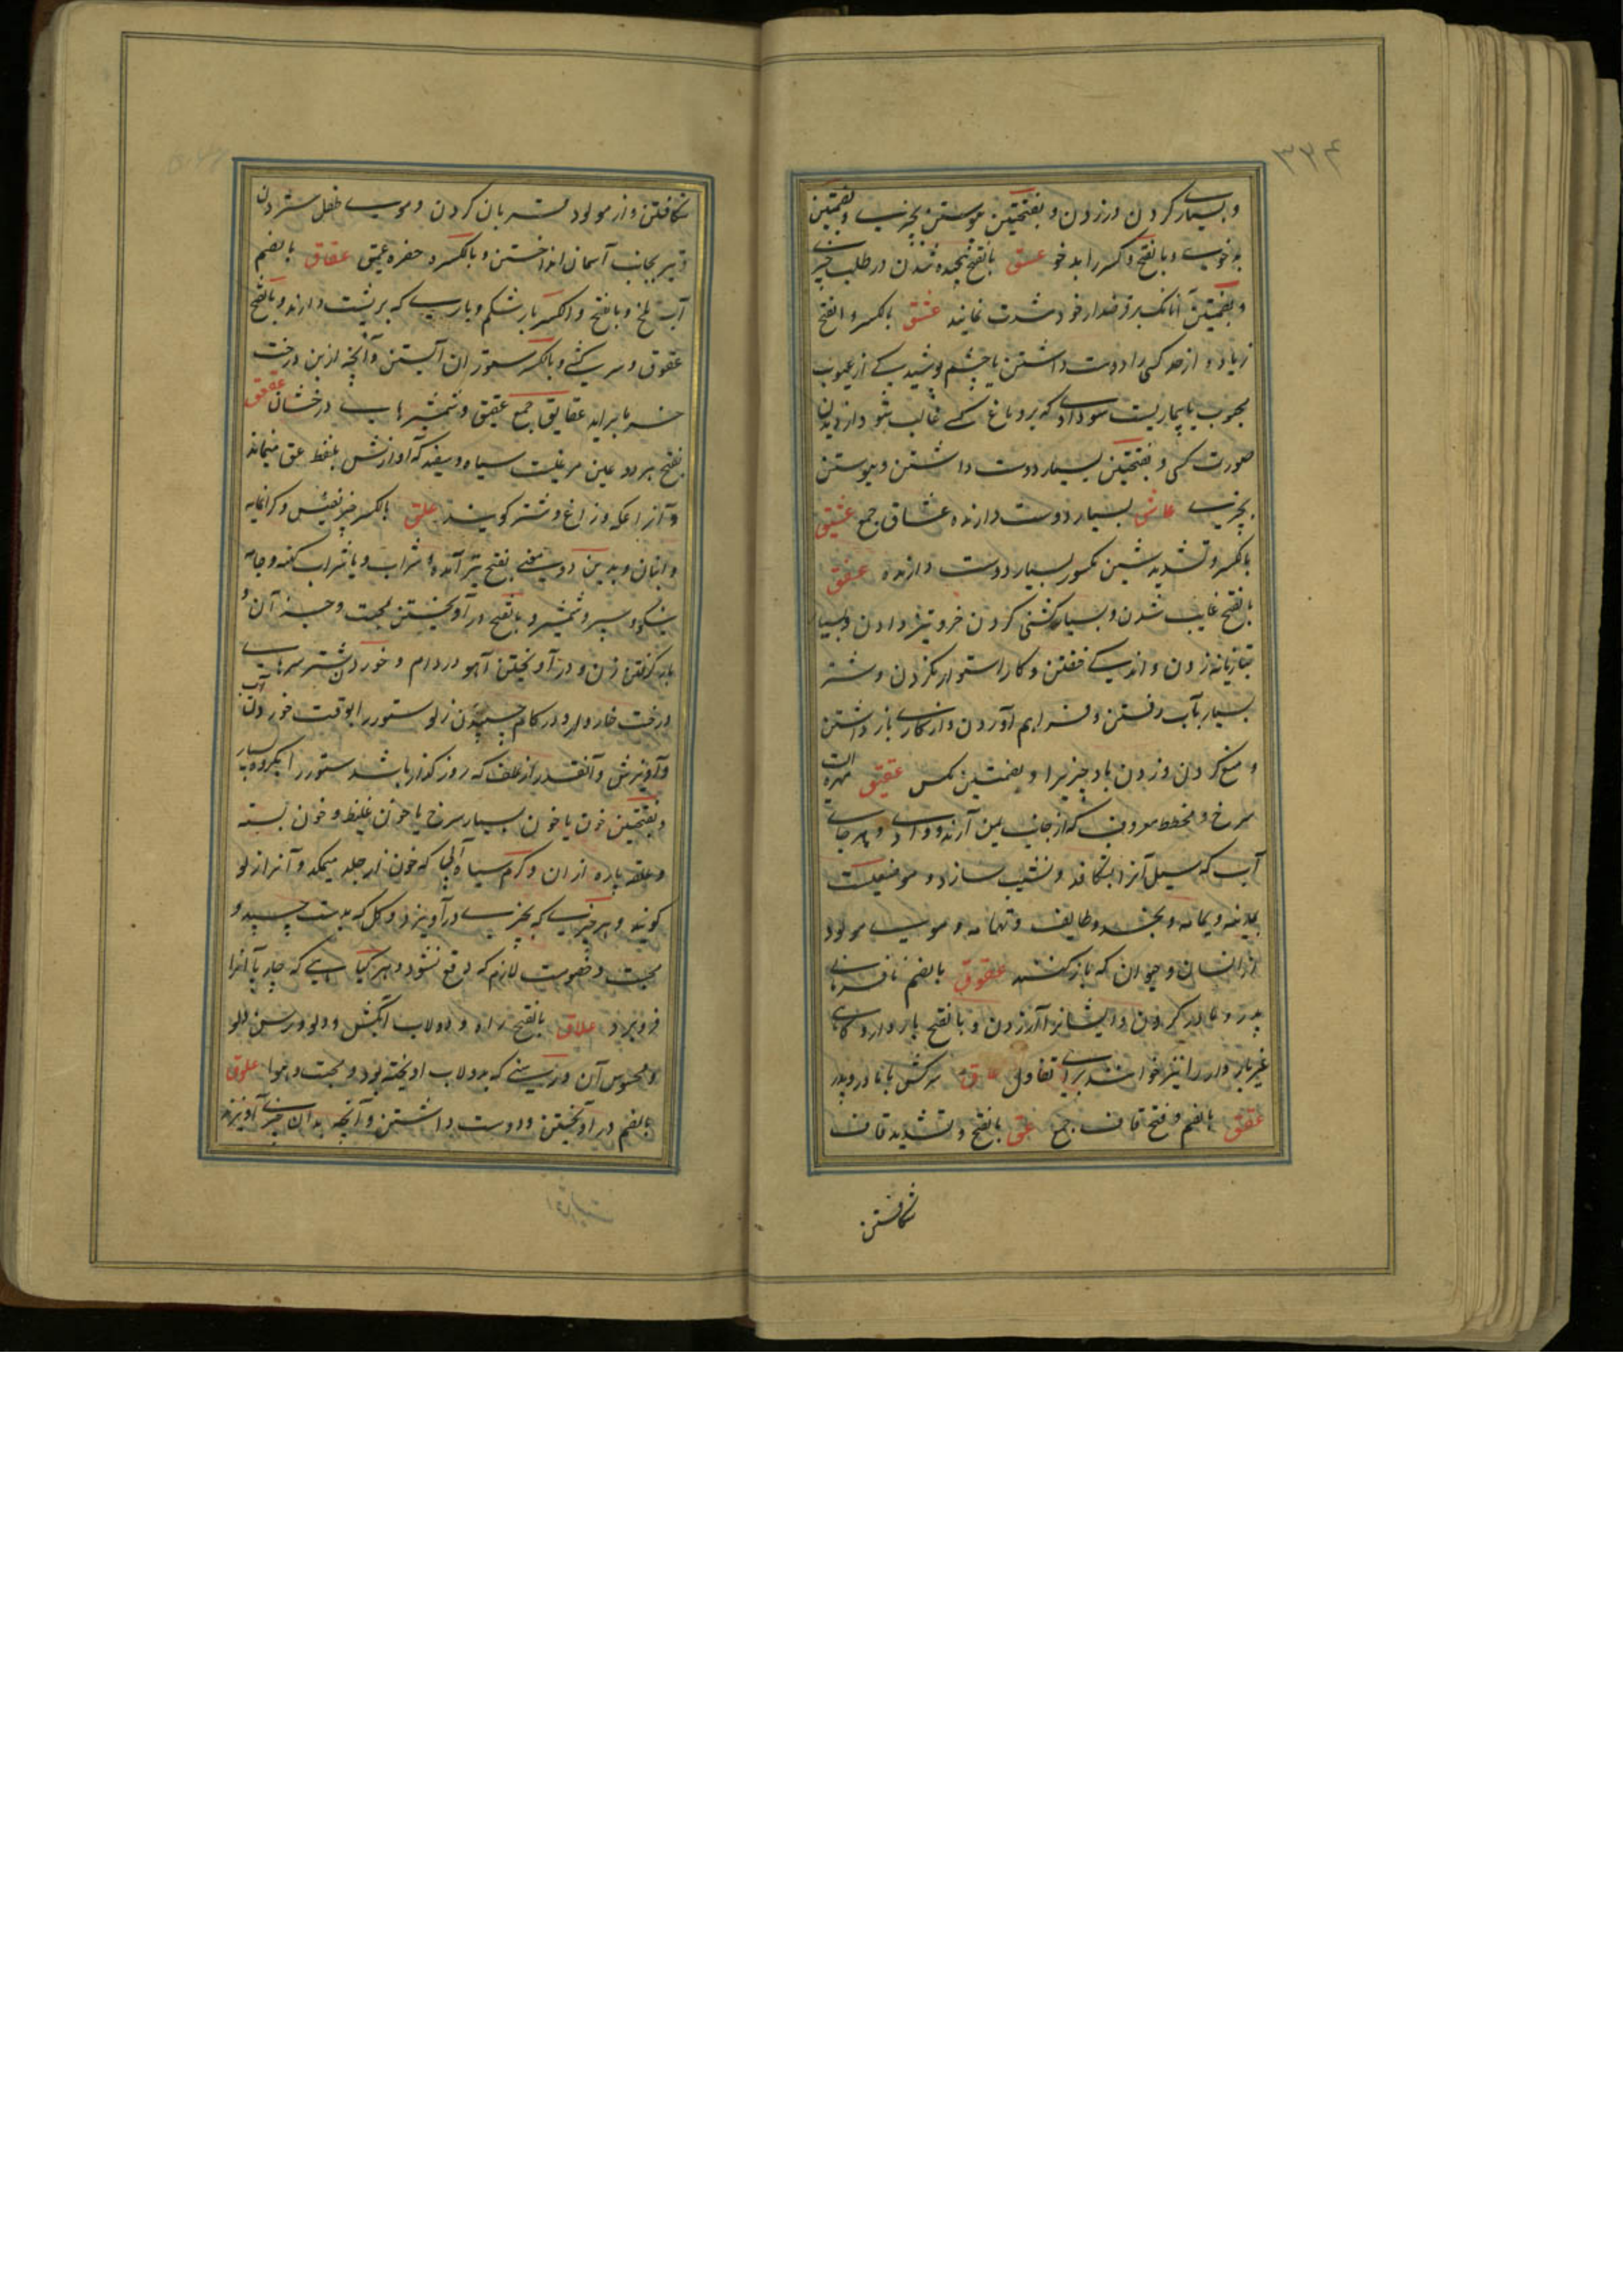 ۳۳۴
و بسیاری کردن و زدن و بفتحتین پیوستن بچیزی و بضمتین
بدخویی و بالفتح و کسر را بدخو عسق بالفتح پیچیده شدن در طلب چیزی
و بضمتین آنانکه بر قرضدار خود شدت نمایند عشق بالکسر و الفتح
زیاده از حد کسی را دوست داشتن یا چشم پوشیدگی از عیوب
محبوب یا بیماریست سوداوی که بر دماغ کسی غالب شود از دیدن
صورت کسی و بفتحتین بسیار دوست داشتن و پیوستن
بچیزی عاشق بسیار دوست دارنده عشاق جمع عشیق
بالکسر و تشدید شین مکسور بسیار دوست دارنده عفق
بالفتح غایب شدن و بسیار کشنی کردن خر و تیز دادن و بسیار
بتازیانه زدن و اندکی خفتن و کار استوار نکردن و شتر
بسیار بآب رفتن و فراهم آوردن و از کاری باز داشتن
و منع کردن و زدن باد چیزیرا و بضمتین مکس عقیق مهره ایست
سرخ و مخطط معروف که از جانب یمن آرند و وادی و هر جای
آب که سیل آنرا بشکافد و نشیب سازد و موضعیست
بمدینه و یمامه و بنجد و طایف و تهامه و موی مولود
از انسان و حیوان که باز کنند عقوق بالضم نافرمانی
پدر و مادر کردن و ایشانرا آزردن و بالفتح باردار و گاهی
غیر باردار را نیز خوانند برای تفاول عاق سرکش با مادر و پدر
عقق بالضم و فتح قاف جمع عق بالفتح و تشدید قاف
شکافتن
شکافتن و از مولود قربان کردن و موی طفل ستردن
و تیر بجانب آسمان انداختن و بالکسر حفره عمیق عقاق بالضم
آب تلخ و بالفتح و الکسر بار شکم و باری که بر پشت دارند و بالفتح
عقوق و سرکشی و بالکسر ستوران آبستن و آنچه از بن درخت
خرما براید عقایق جمع عقیق و شمشیرهای درخشان عقعق
بفتح هر دو عین مرغیست سیاه و سفید که آوازش بلفظ عق میماند
و آنرا عکه و زاغ دشتی گویند علق بالکسر چیز نفیس و گرانمایه
و انبان و بدین دو معنی بفتح نیز آمده و شراب و یا شراب کهنه و جامه
نیکو و سپر و شمشیر و بالفتح در آویختن بمحبت و جز آن و
بار گرفتن زن و در آویختن آهو در دام و خوردن شتر سرهای
درخت خاردار و در کام چسپیدن زلو ستور را بوقت خوردن آب
و آویزش و آنقدر از علف که روز گذار باشد ستور را
و بفتحتین خون یا خون بسیار سرخ یا خون غلیظ و خون بسته
و علقه پاره ازان و کرم سیاه آبی که خون از جلد میمکد و آنرا زلو
گویند و هر چیزی که بچیزی درآویزد و گل که بدست چسپد و
محبت و خصومت لازم که دفع نشود و هر گیاهی که چارپا آنرا
فرو برد علاق بالفتح راه و دولاب آبکش و دلو و رسن دلو
و محوس آن و رسنی که بدولاب آویخته بود و محبت و هوا علوق
بالضم در آویختن و دوست داشتن و آنچه بدان چیزی آویزند